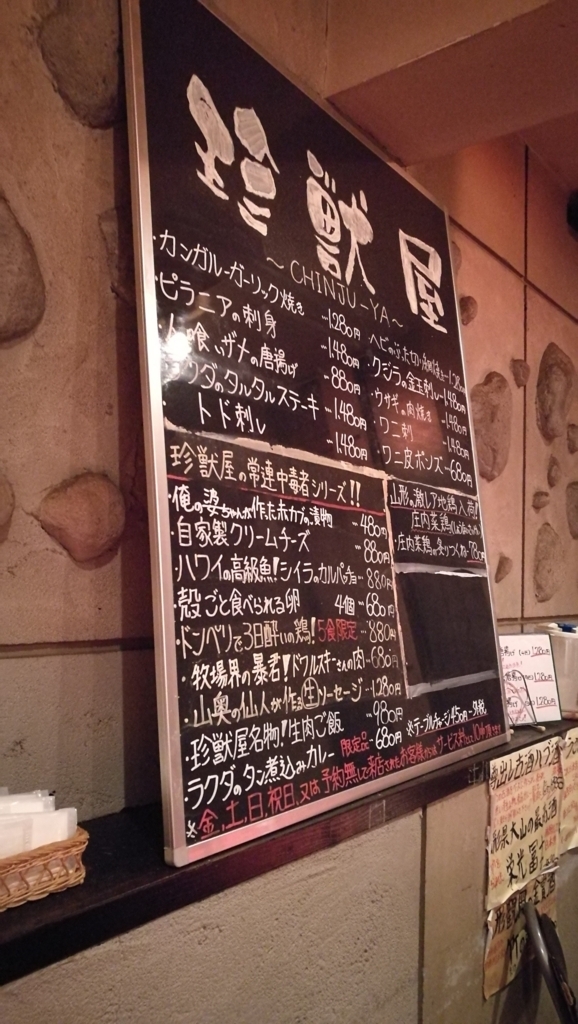 珍獣屋
~CHINJU-YA~
・カンガルーガーリック焼き …1,280円
・ピラニアの刺身 …1,480円
・人喰いザメの唐揚げ …880円
ラクダのタルタルステーキ …1,480円
トド刺し …1,480円
・クジラの金玉刺し …1,480円
・ウサギの肉焼き …1,480円
・ワニ刺 …1,480円
・ワニ皮ポンズ …680円
珍獣屋の常連中毒者シリーズ!!
・俺の婆ちゃんが作った赤カブの漬物 …480円
・自家製クリームチーズ …880円
・ハワイの高級魚!シイラのカルパッチョ…880円
・殻ごと食べられる卵 4個 …680円
・ドンペリで3日酔いの鶏!5食限定 …880円
・牧場界の暴君!ドフルスキーさんの肉…680円
・山奥の仙人が作る生ソーセージ …1,280円
・珍獣屋名物!生肉ご飯 …980円
・ラクダのタン煮込みカレー 限定品…680円
山形の激レア地鶏入荷!!
庄内菜鶏
・庄内菜鶏の炙りつくね…780円
※テーブルチャージ450円 外税
※金,土,日,祝日,又は予約無しで来店されたお客様からはサービス料として10%頂きます
1,280円
1,280円
1,280円